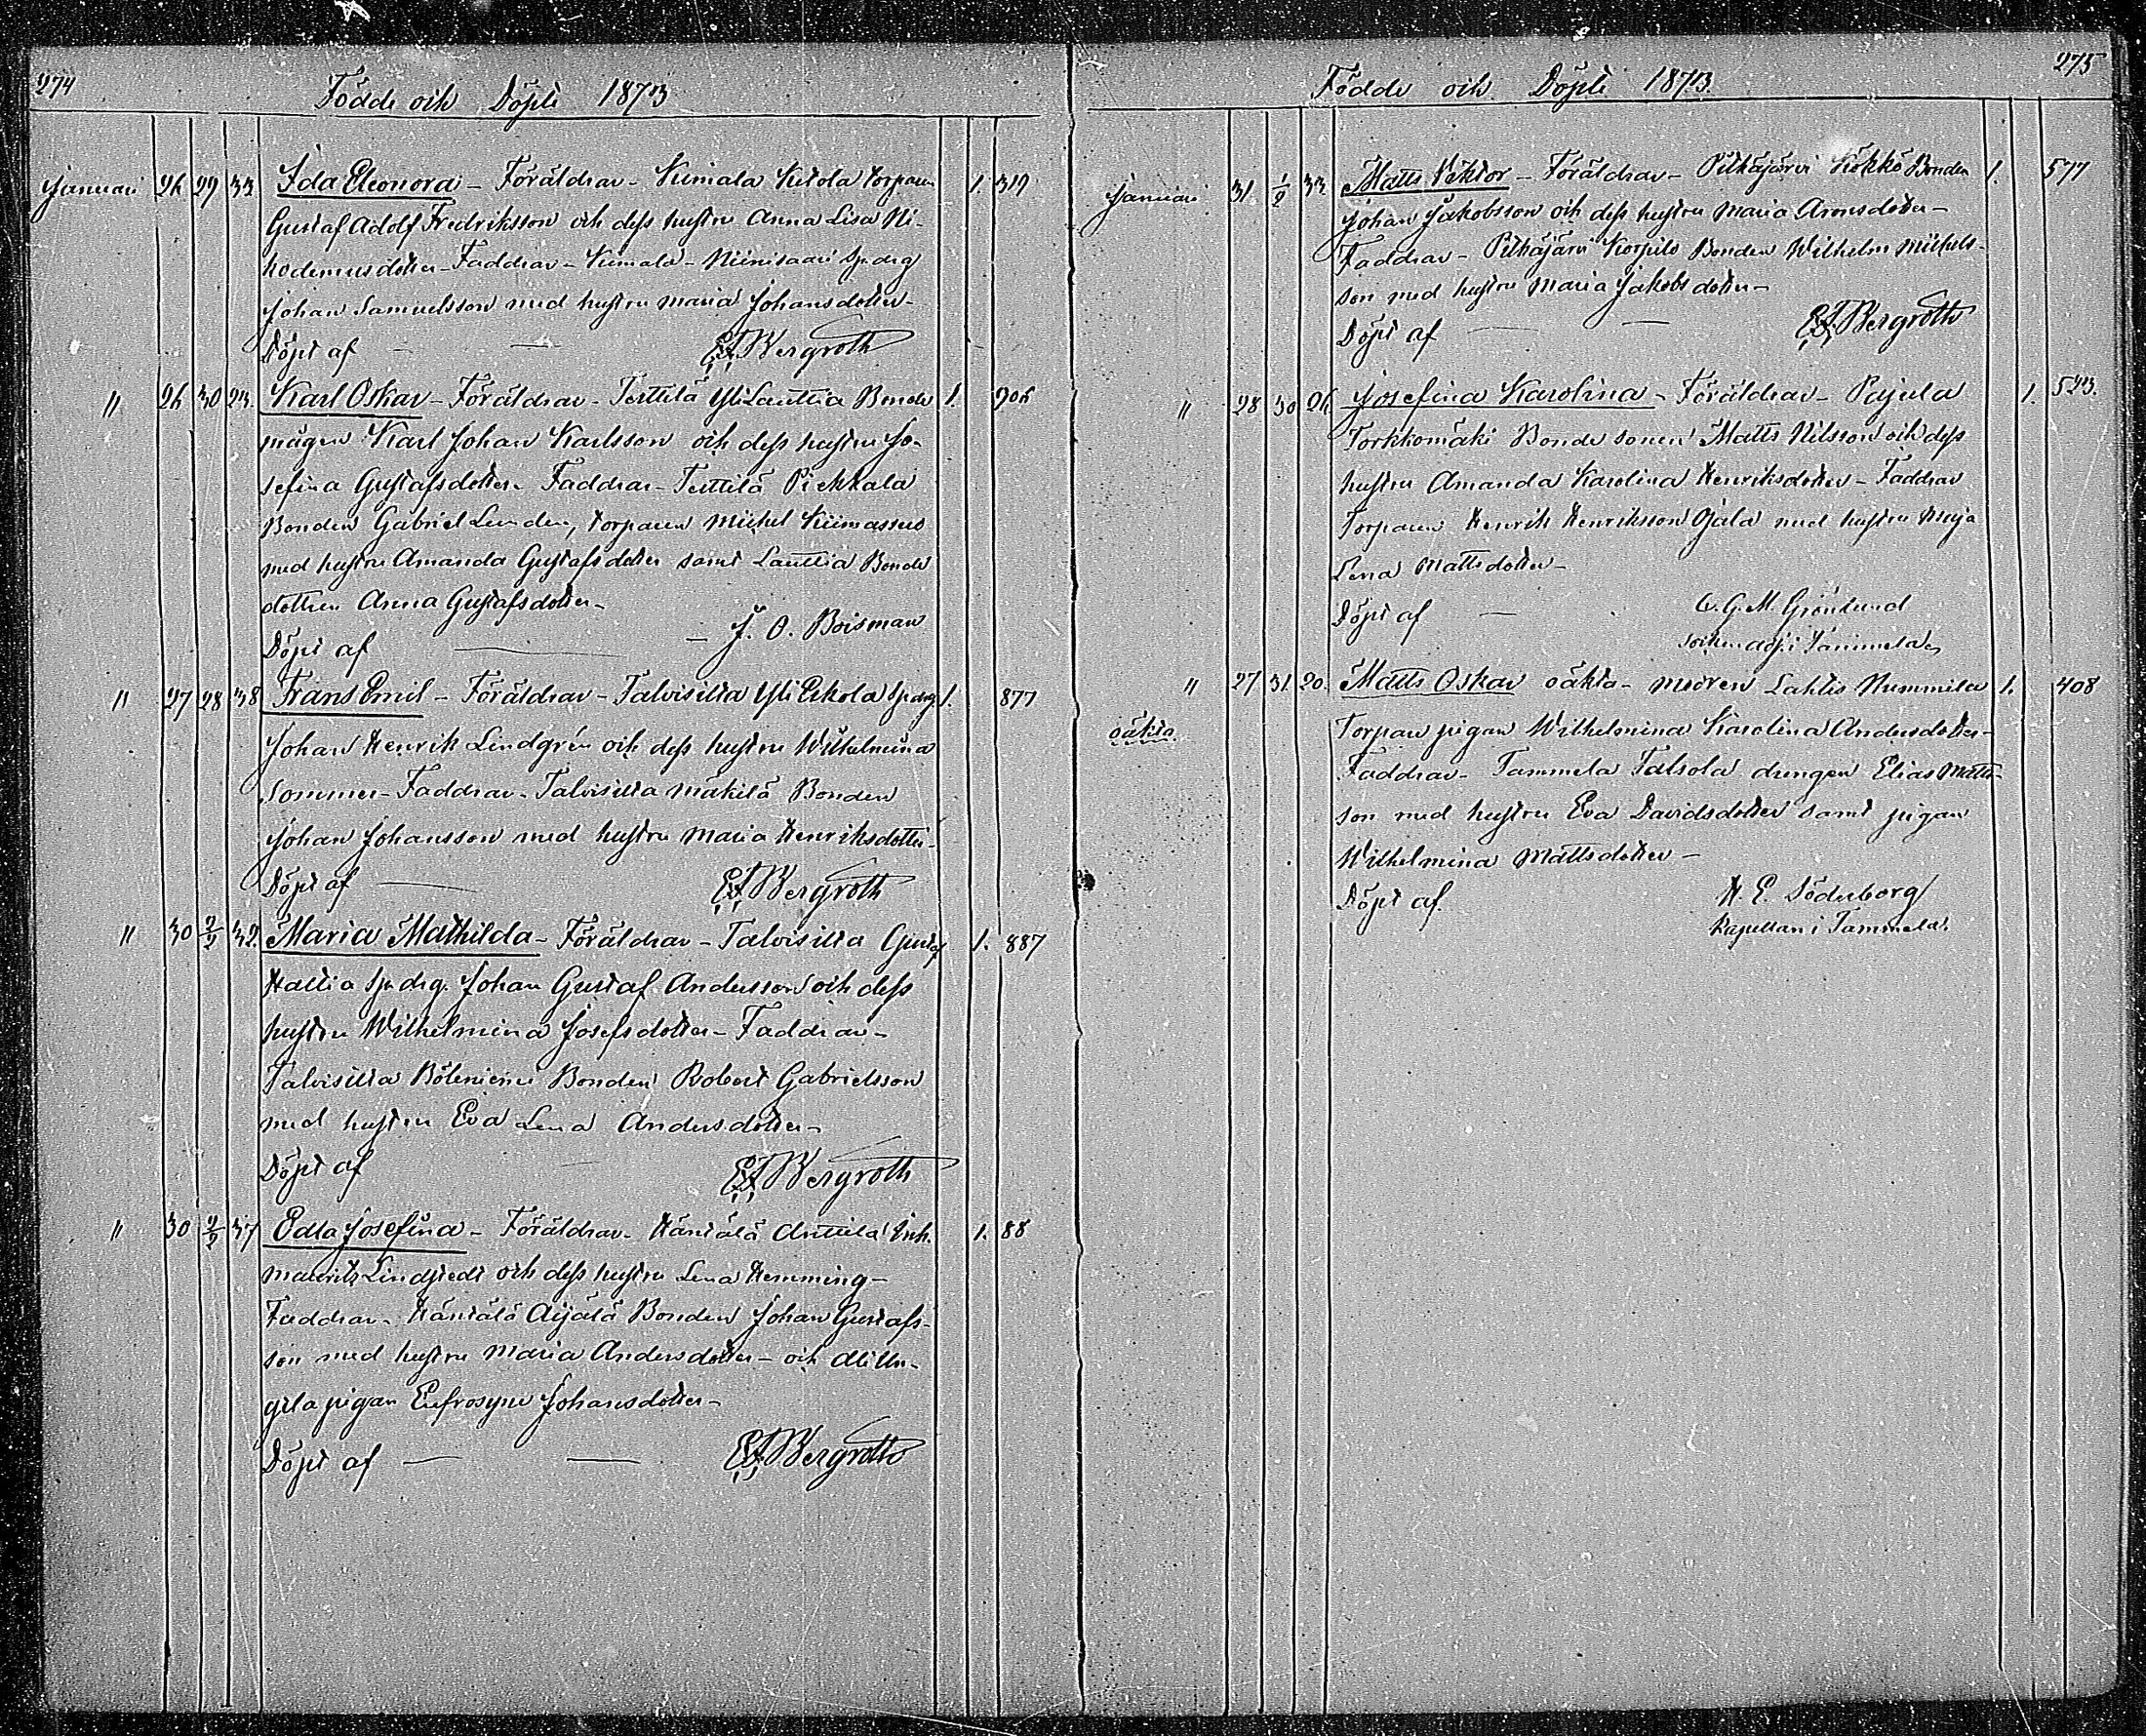 274
Födde och Döpte 1873
Januari 26 29 33 Ida Eleonora – Föräldrar – Kimala Kutola torparen 1. 319
Gustaf Adolf Fredriksson och dess hustru Anna Lisa Ni-
kodemusdotter – Faddrar – Kimala – Niinisaari
Johan Samuelsson med hustru Maria Johansdotter –
Döpt af — — Bergroth
" 26 30 23. Karl Oskar – Föräldrar – Terttilä Yli Lauttia Bonde 1. 906
mågen Karl Johan Karlsson och dess hustru Jo-
sefina Gustafsdotter – Faddrar – Terttilä Piekkala
Bonden Gabriel Lunden, torparen Michel
med hustru Amanda Gustafsdotter samt Lauttia Bonde
dottren Anna Gustafsdotter –
Döpt af — – J. O. Boisman
" 27 28 38 Frans Emil – Föräldrar – Talvisilta Yli Eskola 1. 877
Johan Henrik Lindgrén och dess hustru Wilhelmina
Sommer – Faddrar – Talvisilta Mäkilä Bonden
Johan Johansson med hustru Maria Henriksdotter –
Döpt af — Bergroth
" 30 2/2 32. Maria Mathilda – Föräldrar – Talvisilta Gustaf 1. 887
Hallia Johan Gustaf Andersson och dess
hustru Wilhelmina Josefsdotter – Faddrar –
Talvisilta Bonden Robert Gabrielsson
med hustru Eva Lena Andersdotter –
Döpt af Bergroth
" 30 2/2 37 Edla Josefina – Föräldrar – Häntälä Anttila Inh. 1. 88
Maurits Lindstedt och dess hustru Lena Hemming –
Faddrar – Häntälä Äijälä Bonden Johan Gustafs-
son med hustru Maria Andersdotter – och
pigan Eufrosyne Johansdotter –
Döpt af — — Bergroth
275
Födde och Döpte 1873.
Januari 31. 1/2 33. Matts Vektor – Föräldrar – Pitkäjärvi Kokko Bonden 1. 577
Johan Jakobsson och dess hustru Maria Aronsdotter –
Faddrar – Pitkäjärvi Korpilo Bonden Wilhelm Michels-
son med hustru Maria Jakobsdotter –
Döpt af — — Bergroth
" 28 30 26 Josefina Karolina – Föräldrar – Pajula 1. 523.
Torkkomäki Bonde sonen Matts Nilsson och dess
hustru Amanda Karolina Henriksdotter – Faddrar
Torparen Henrik Henriksson Ojala med hustru Maja
Lena Mattsdotter –
Döpt af — G. M. Grönlund
socken adj. i Tammela
" 27 31. 20. Matts Oskar oäkta – modren Lahtis Nummila 1. 408
oäkta. Torpare pigan Wilhelmina Karolina Andersdotter –
Faddrar – Tammela Talsola drengen Elias Matts-
son med hustru Eva Davidsdotter samt pigan
Wilhelmina Mattsdotter –
Döpt af. H. E. Söderborg
Kapellan i Tammela.